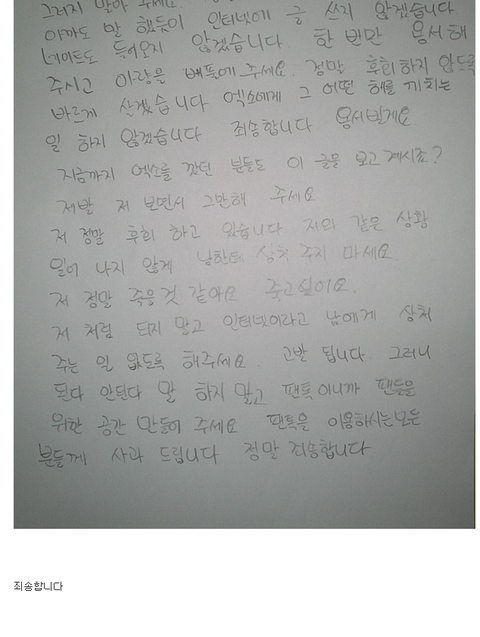 그러지 말아 주세요.
아까도 말 했듯이 인터넷에 글 쓰지 않겠습니다
네이트도 들어오지 않겠습니다 한 번만 용서해
주시고 아량을 베풀어 주세요. 정말 후회하지 않도록
바르게 살겠습니다 엑소에게 그 어떤 해를 끼치는
일 하지 않겠습니다 죄송합니다 용서빌게요
지금까지 엑소를 깠던 분들도 이 글을 보고 계시죠?
제발 저 보면서 그만해 주세요
저 정말 후회 하고 있습니다 저와 같은 상황
일어 나지 않게 남한테 상처 주지 마세요
저 정말 죽을것 같아요 죽고싶어요.
저 처럼 되지 말고 인터넷이라고 남에게 상처
주는 일 없도록 해주세요 고발 됩니다. 그러니
된다 안된다 말 하지 말고 팬톡이니까 팬들을
위한 공간 만들어 주세요 팬톡을 이용하시는모든
분들께 사과 드립니다 정말 죄송합니다
죄송합니다